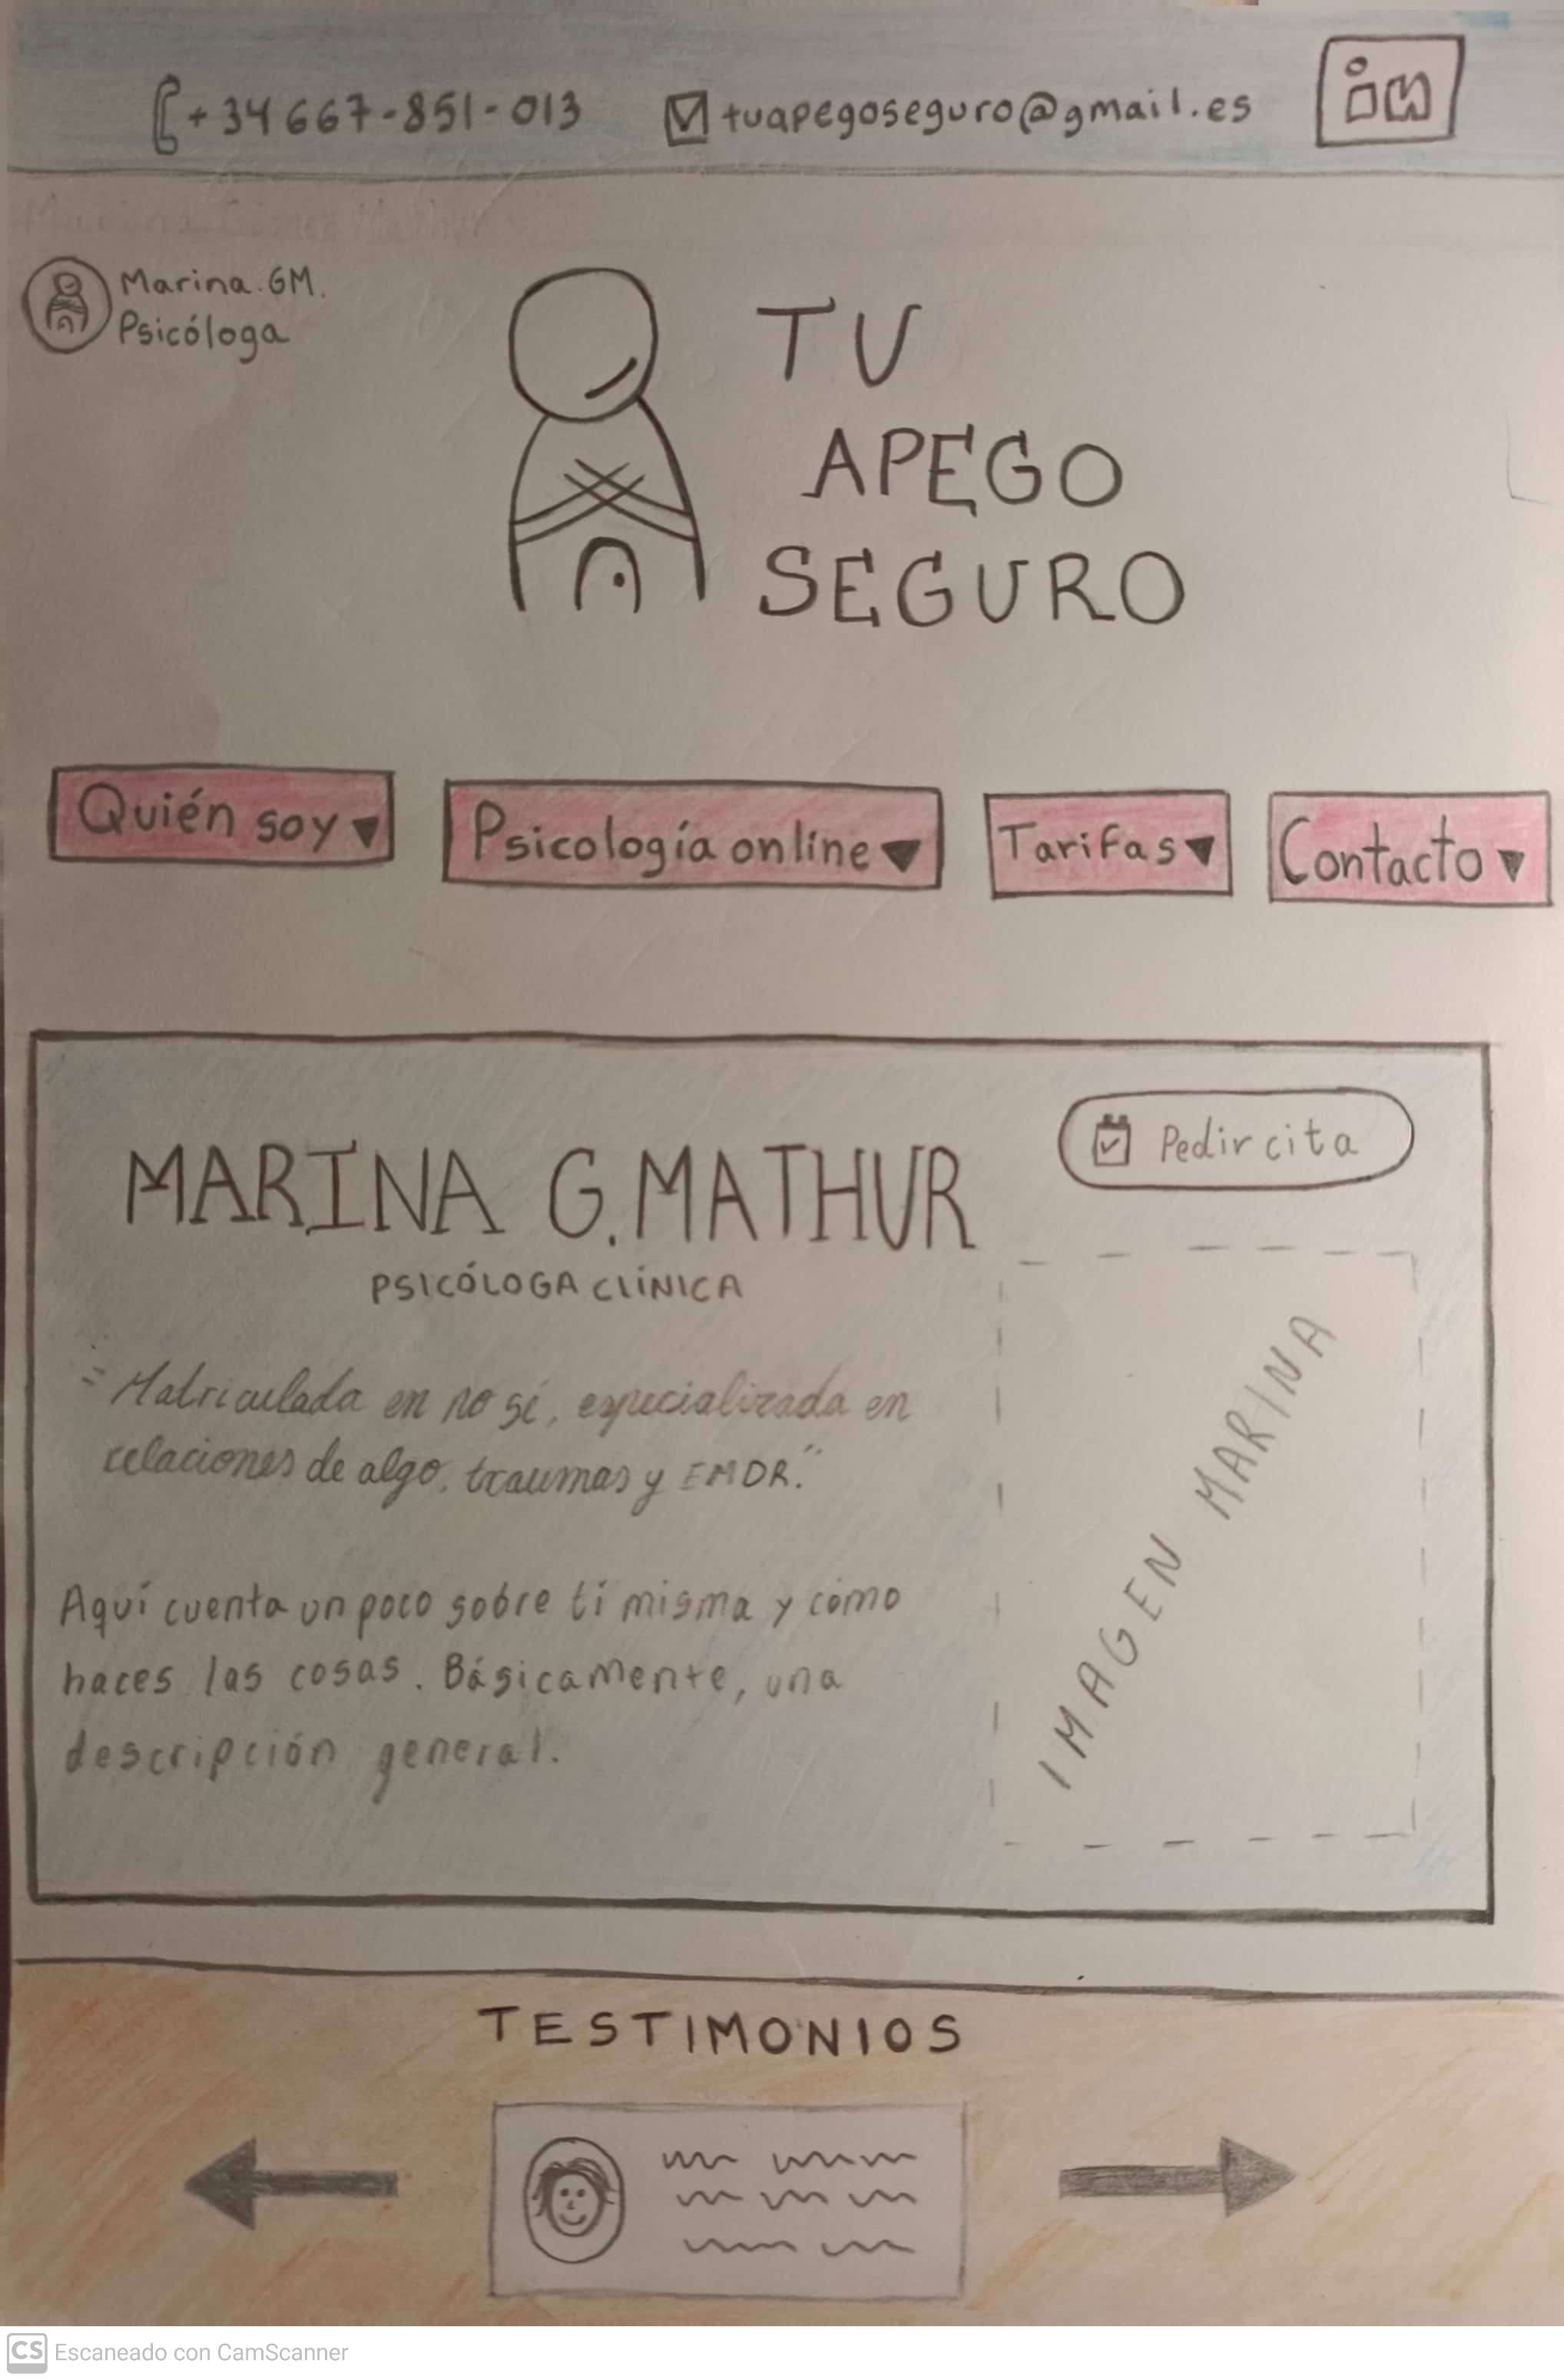 +34 667-851-013
tuapegoseguro@gmail.es
in
Marina.GM.
Psicóloga
TU
APEGO
SEGURO
Quién soy ▼
Psicología online ▼
Tarifas ▼
Contacto ▼
MARINA G.MATHUR
Pedir cita
PSICÓLOGA CLÍNICA
"Matriculada en no sé, especializada en
relaciones de algo, traumas y EMDR."
IMAGEN MARINA
Aquí cuenta un poco sobre ti misma y cómo
haces las cosas. Básicamente, una
descripción general.
TESTIMONIOS
CS Escaneado con CamScanner